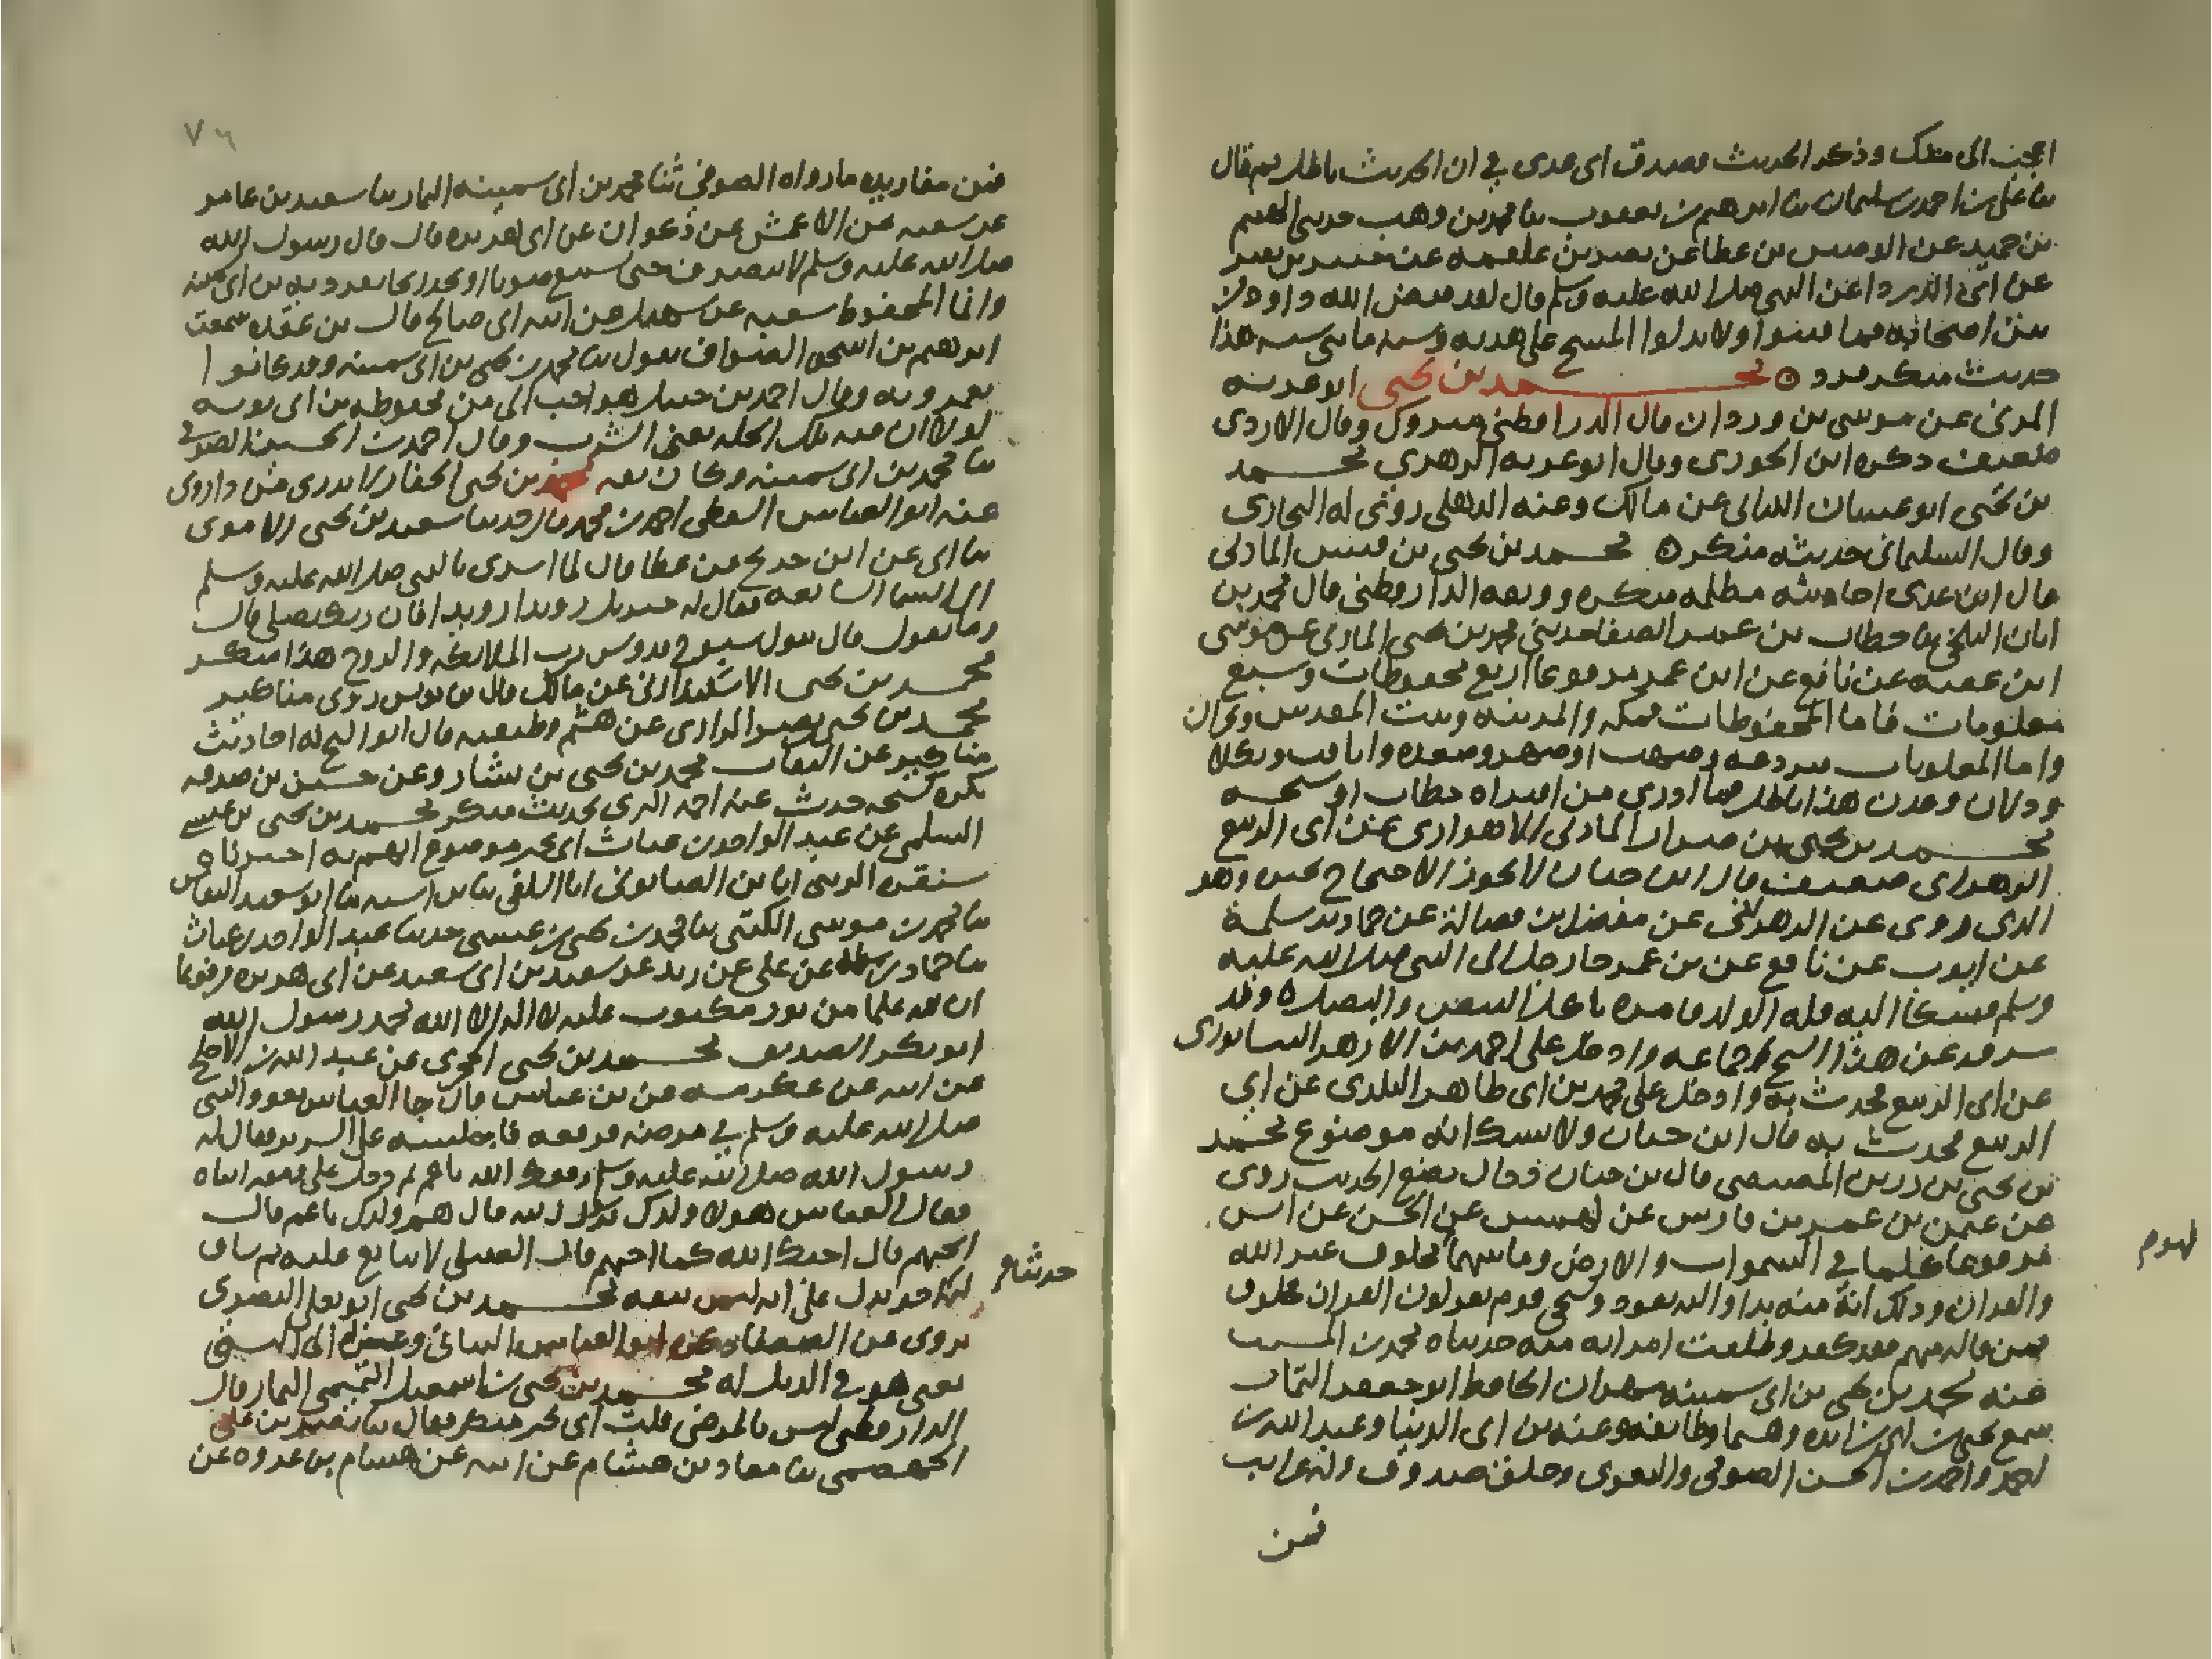 اعجب الى منك وذكر الحديث فصدق ابى عدى فى ان الحديث باطل ثم قال
بنا على بن احمد بن سليمان بنا ابرهيم بن يعقوب بنا محمد بن وهب حدثنى الهيثم
بن حميد عن الوضين بن عطا عن نصر بن علقمه عن جبير بن نفير
عن ابى الدردا عن النبى صلى الله عليه وسلم قال لقد قبض الله داود من
بين اصحابه فما فتنوا ولا بدلوا المسيح على هديه وسنه مائتى سنه هذا
حديث منكر فرد ۞ محمد بن يحيى ابو غزيه
المدنى عن موسى بن وردان قال الدارقطنى متروك وقال الازدى
ضعيف ذكره ابن الجوزى وقال ابو غزيه الزهرى محمد
بن يحيى ابو غسان الكنانى عن مالك وعنه الذهلى روى له البخارى
وقال السليمانى حديثه منكر ۞ محمد بن يحيى بن قيس الماربى
قال ابن عدى احاديثه مظلمه منكره ووثقه الدارقطنى قال محمد بن
ابان البلخى بنا خطاب بن عمر الصفار حدثنى محمد بن يحيى الماربى عن موسى
ابن عقبه عن نافع عن ابن عمر مرفوعا اربع محفوظات وسبع
ملعونات فاما المحفوظات فمكه والمدينه وبيت المقدس ونجران
واما الملعونات فبردعه وصهب او صهر وصعده واثافت وبكلا
ودلان وعدن هذا باطل فما ادرى من افتراه خطاب او شيخه
محمد بن يحيى بن ضرار المازنى الاهوازى عن ابى الربيع
الزهرانى ضعيف قال ابن حبان لا يجوز الاحتجاج بخبره وهو
الذى روى عن الزهرانى عن مفضل بن فضالة عن حماد بن سلمة
عن ايوب عن نافع عن بن عمر جا رجل الى النبى صلى الله عليه
وسلم فشكا اليه قله الولد فامره باكل البيض والبصل ۞ وقد
سرقه عن هذا الشيخ جماعه وادخل على احمد بن الازهر النيسابورى
عن ابى الربيع فحدث به وادخل على محمد بن ابى طاهر البلدى عن ابي
الربيع فحدث به قال ابن حبان ولا شك انه موضوع محمد
بن يحيى بن رزين المصيصى قال بن حبان دجال يضع الحديث روى
عن عثمن بن عمر بن فارس عن كهمس عن الحسن عن انس
مرفوعا كلما فى السموات والارض وما بينهما مخلوق غير الله
والقران وذلك انه منه بدا واليه يعود وسيجى قوم يقولون القران مخلوق
فمن قاله منهم فقد كفر وطلقت امراته منه حدثناه محمد بن المسيب
عنه محمد بن يحيى بن ابى سمينه مهران الحافظ ابو جعفر التمار
سمع يحيى بن ابى زايده وهشيما وطائفه وعنه بن ابى الدنيا وعبد الله بن
احمد واحمد بن الحسن الصوفى والبغوى وخلق صدوق وله غرايب
فمن
لهوم
٧٦
فمن مفاريده ما رواه الصوفى ثنا محمد بن ابى سمينه التمار بنا سعيد بن عامر
عن شعبه عن الاعمش عن ذكوان عن ابى هريره قال قال رسول الله
صلى الله عليه وسلم لا ينصرف حتى يسمع صوتا او يجد ريحا تفرد به بن ابى سمينه
وانما المحفوظ شعبه عن سهيل عن ابيه ابى صالح قال بن عقده سمعت
ابرهيم بن اسحق الصواف يقول بنا محمد بن يحيى بن ابى سمينه وقد كانوا
يغمزونه وقال احمد بن حنبل هو احب الى من محفوظ بن ابى توبه
لولا ان فيه تلك الخله يعنى الشرب وقال احمد بن الحسين الصوفى
بنا محمد بن ابى سمينه وكان ثقه محمد بن يحيى الحفار لا يدرى من ذا روى
عنه ابو العباس السقطى احمد بن محمد قال حدثنا سعيد بن يحيى الاموى
بنا ابى عن ابن جريج عن عطا قال لما اسرى بالنبى صلى الله عليه وسلم
الى السما السابعه فقال له جبريل رويدا رويدا فان ربك يصلى قال
وما يقول قال يقول سبوح قدوس رب الملائكه والروح هذا منكر
محمد بن يحيى الاسكندرانى عن مالك قال بن يونس روى مناكير
محمد بن يحيى بن نصر الرازى عن هشيم وطبقته قال ابو الشيخ له احاديث
مناكير عن الثقات محمد بن يحيى بن بشار وعن حسين بن صدقه
نكره كشيخه حدث عنه احمد البرى بحديث منكر محمد بن يحيى بن عيسى
السلمى عن عبد الواحد بن غياث اتى بخبر موضوع اتهم به اخبرناه
سنقر الزينى ابنا بن الصابونى ابنا السلفى بنا بن اسد بنا ابو سعيد النقاش
بنا محمد بن موسى الكتبى بنا محمد بن يحيى بن عيسى حدثنا عبد الواحد بن غياث
بنا حماد بن سلمه عن على بن زيد عن سعيد بن ابى سعيد عن ابى هريره مرفوعا
ان لله علما من نور مكتوب عليه لا اله الا الله محمد رسول الله
ابو بكر الصديق محمد بن يحيى الحجرى عن عبد الله بن الاجلح
عن ابيه عن عكرمه عن بن عباس قال جا العباس يعود النبى
صلى الله عليه وسلم فى مرضه فرفعه فاجلسه على السرير فقال له
رسول الله صلى الله عليه وسلم رفعك الله يا عم ثم دخل على ومعه ابناه
فقال العباس هولا ولدك يا رسول الله قال هم ولدك يا عم قال
اتحبهم قال احبك الله كما احبهم قال العقيلى لا يتابع عليه ثم ساق
له حديثا يدل على انه ليس بثقه محمد بن يحيى ابو يعلى البصرى
يروى عن الصعقار عن ابو العباس البنانى وعزاه الى البستى
يعنى هو فى الذيل له محمد بن يحيى بن اسمعيل التميمى التمار قال
الدارقطنى ليس بالمرضى قلت اتى بخبر منكر فقال بنا نصر بن على
الجهضمى بنا معاذ بن هشام عن ابيه عن هشام بن عروه عن
حدثنا